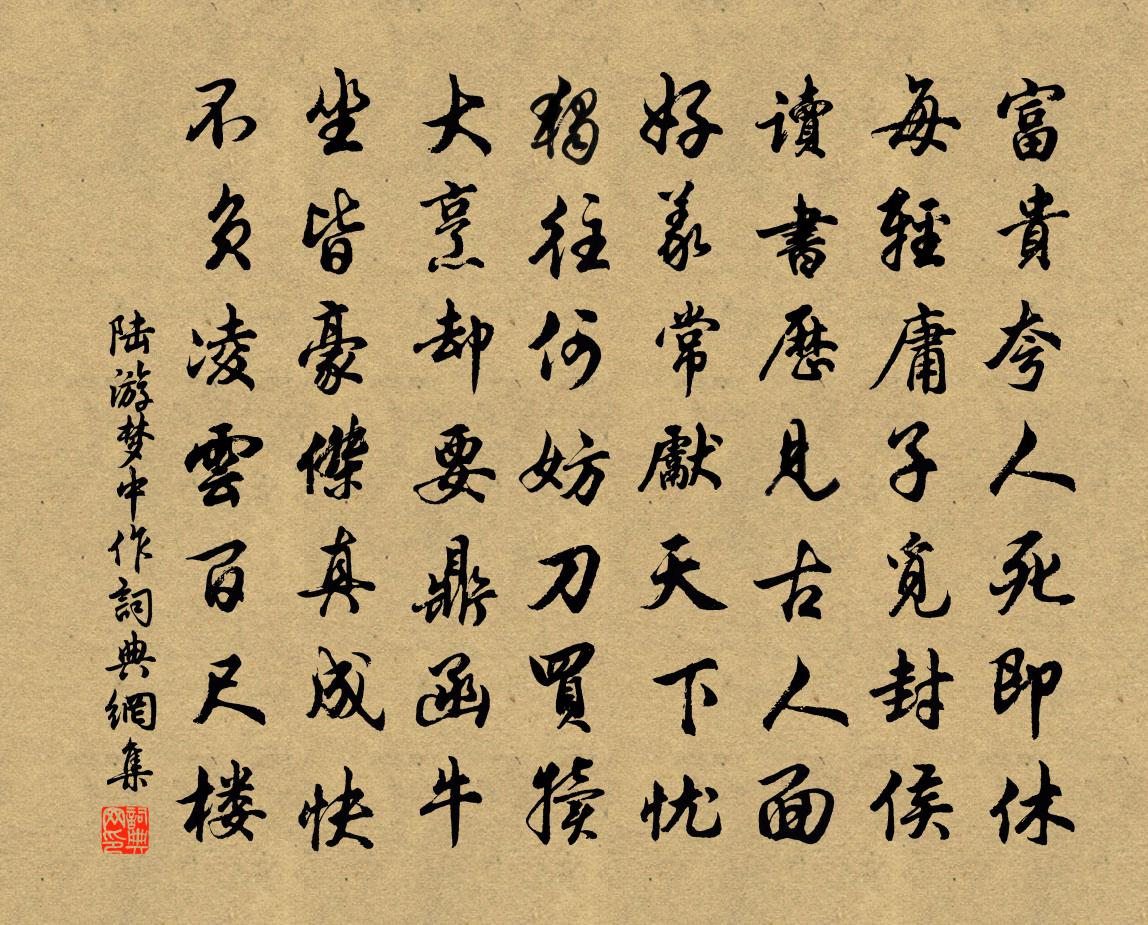 富貴夸人死即休
每輕庸子覓封侯
讀書歷見古人面
好義常獻天下忧
獨往何妨刀買犢
大烹却要鼎函牛
坐皆豪傑真成快
不負凌雲百尺楼
陆游梦中作詞典網集
詞典網印